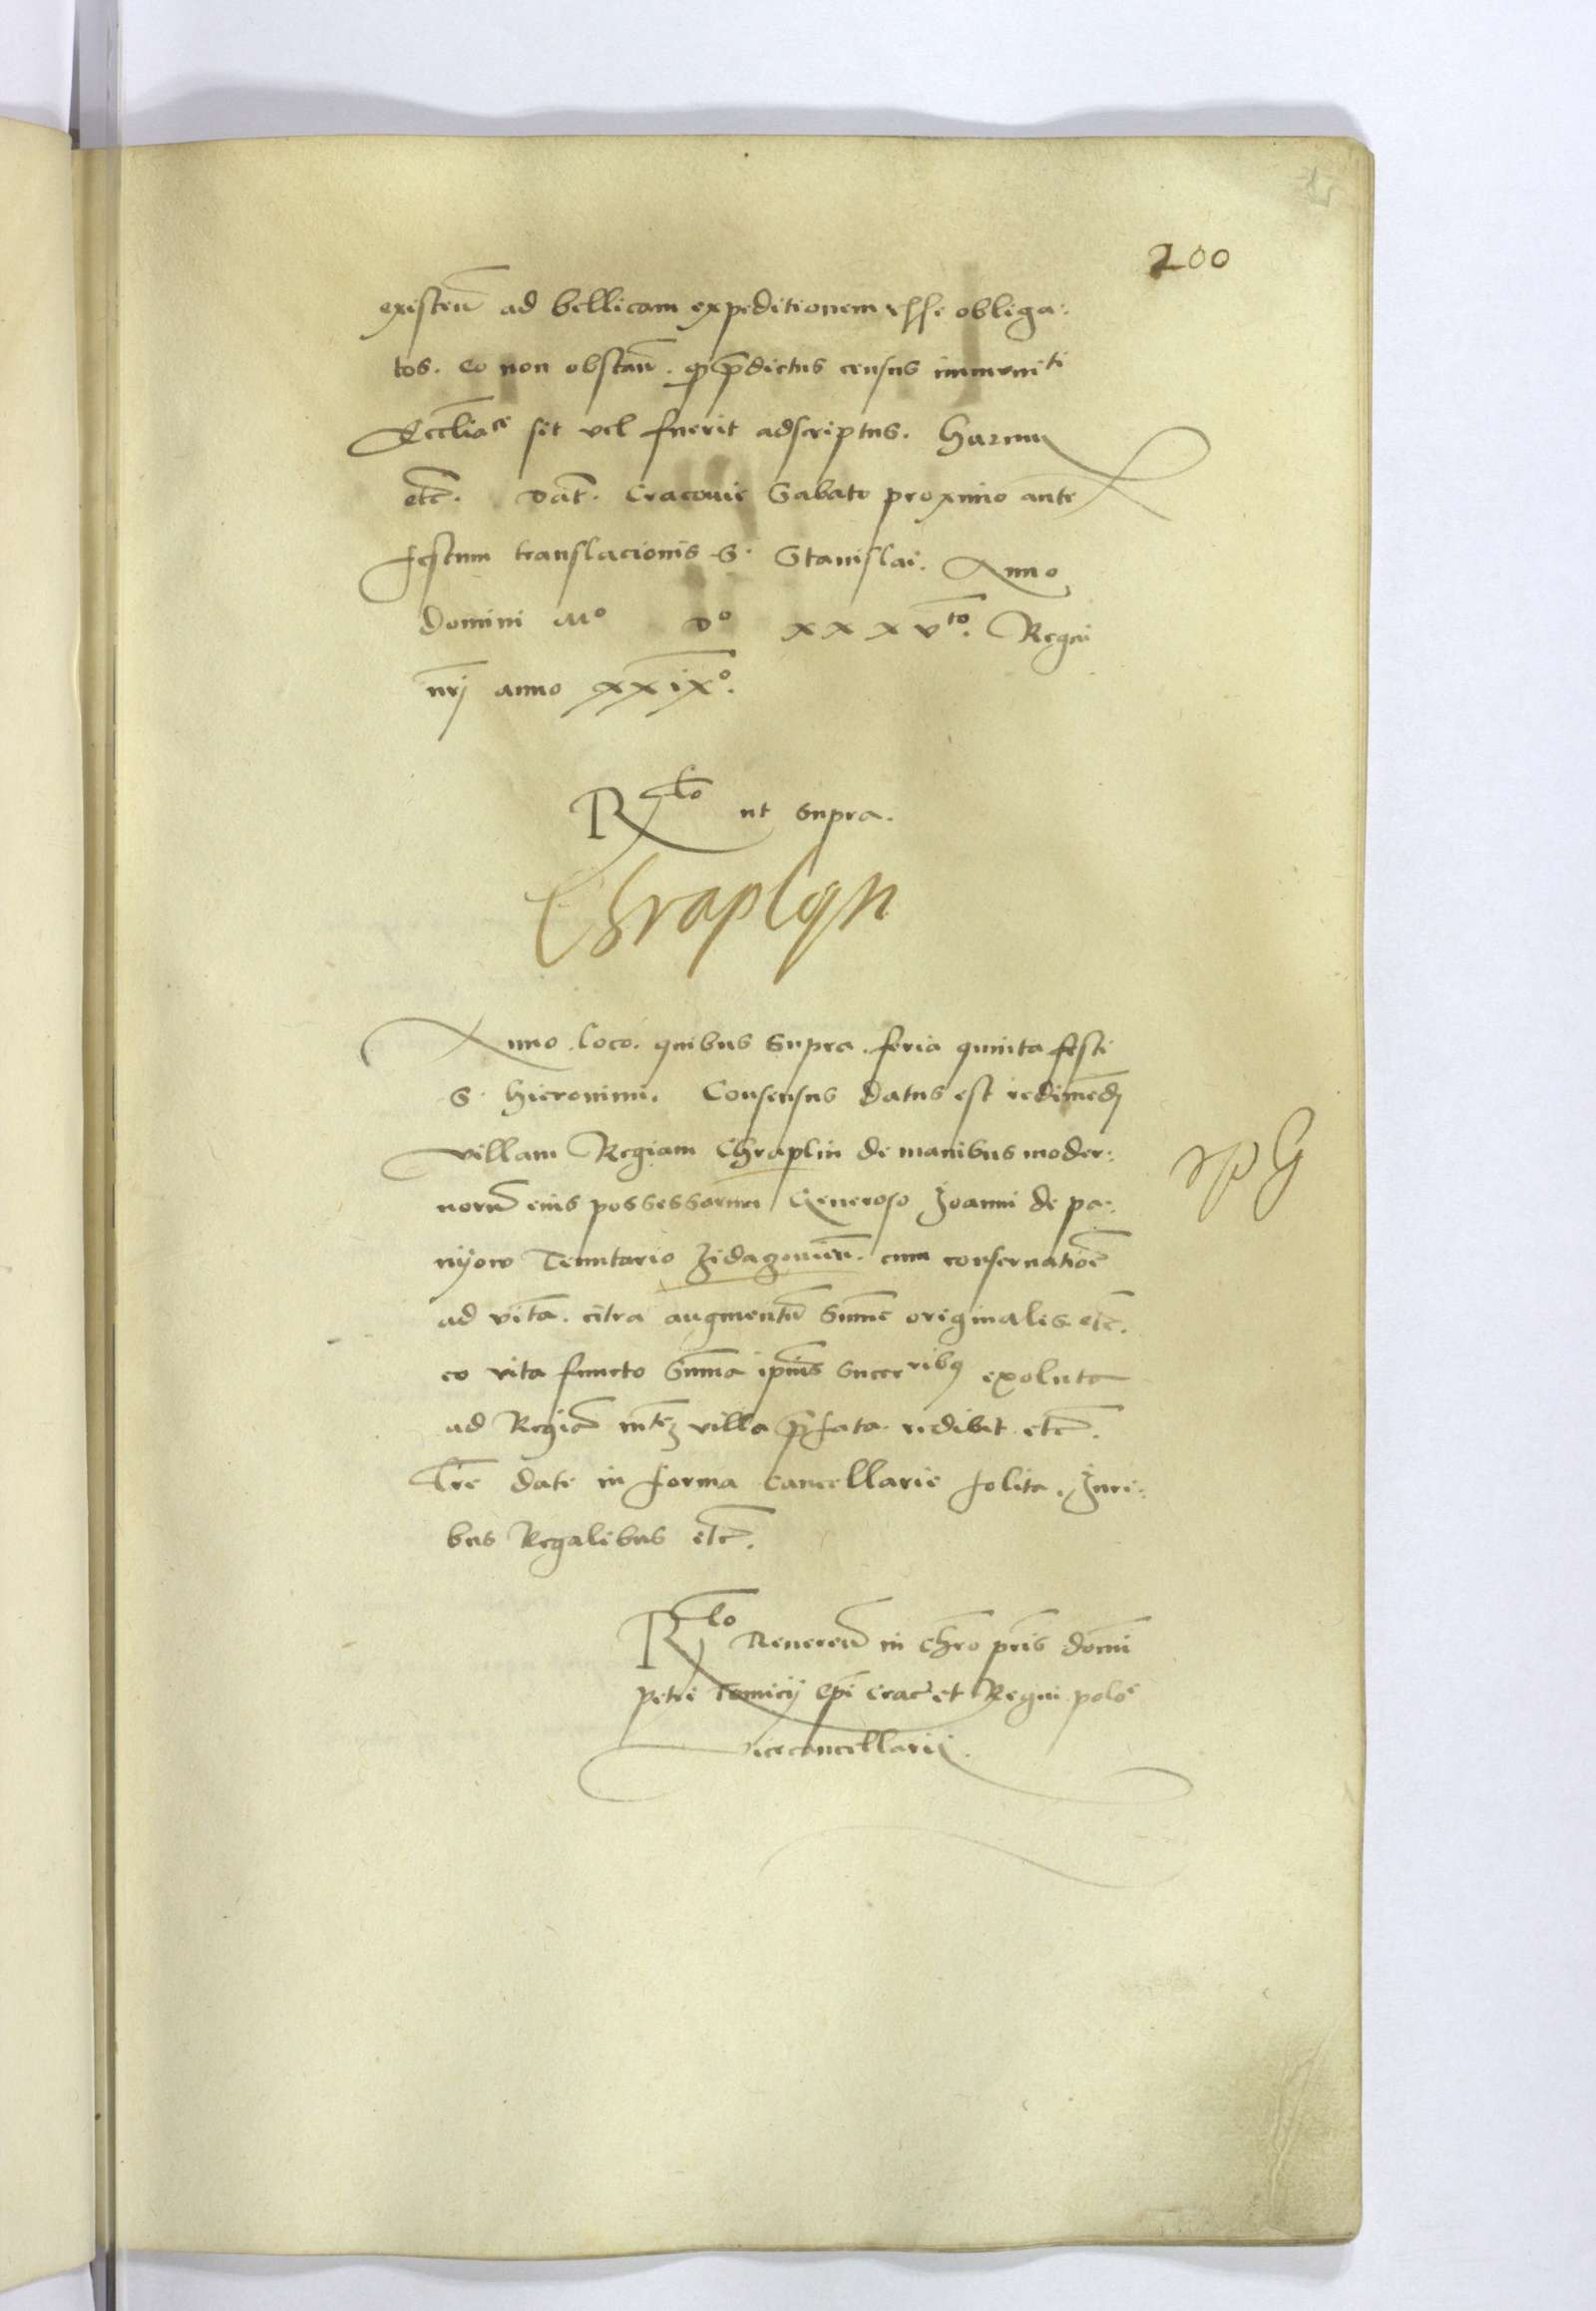 200
existen̄ ad bellicam expeditionem esse obliga:
tos. Eo non obstan̄. qͻ p̄dictus census immuniti
Eccliace sit vel fuerit adscriptus. Harum
etc̄. Dat̄. Cracovie Sabato proximo ante
festum translacionis S. Stanislai. Anno
Domini Mo Do xxxvto. Regni
nrj̄ anno xxixo.
Rlo ut supra.
Chraplyn
Anno. loco. quibus supra. feria quinta festi
S. Hieronimi. Consensus datus est redimēdi
villam Regiam Chraplin de manibus moder:
norū eius possessorum Generoso Joanni de pa:
nyow Tenutario Zidagouien̄. cum conservatiōe
ad vitā. citra augmentū Summe originalis etc̄.
eo vita functo Summa ipīus succribꝰ exoluta
ad Regiā mtē villa p̄fata redibit etc̄.
Lrē date in forma Cancellarie solita. Juri:
bus Regalibus etc̄.
Rlo Reveren̄ in chrō pr̄is domī
petri Tomicij Ep̄i Crac̄ et Regni polōe
vicecancellarij.